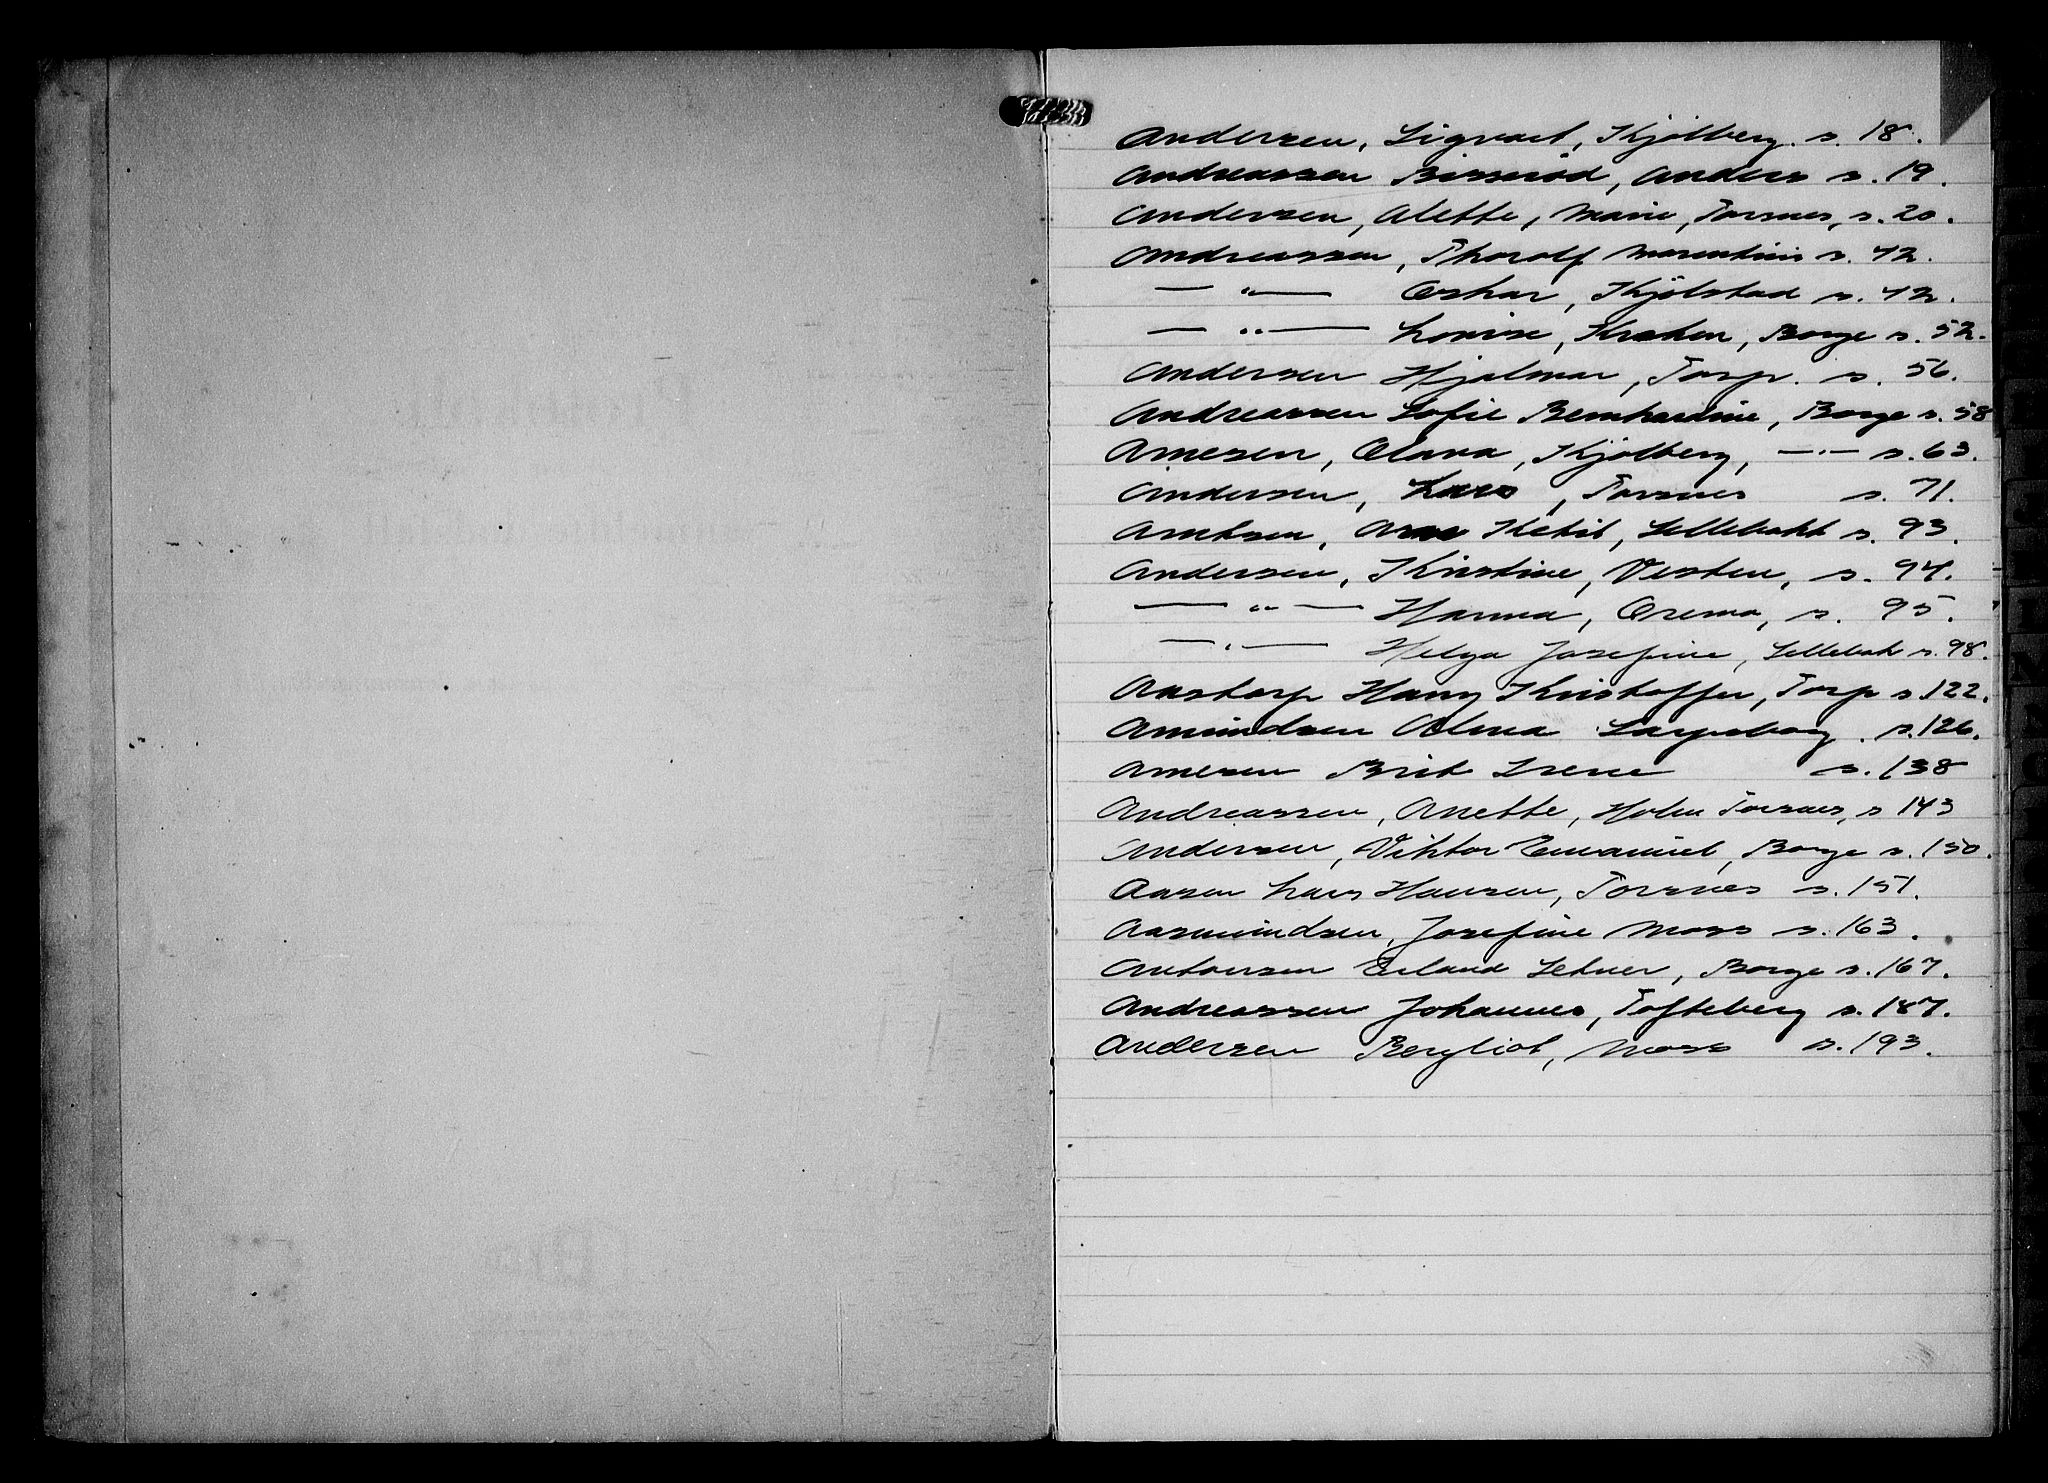 Andersen, Sigvart, Kjølberg. s. 18.
Andreassen Bisserød, Anders s. 19.
Andersen, Alette, Marie, Torsnes, s. 20.
Andreassen, Thorolf Marentius s. 42.
— " — Oskar, Kjølstad s. 42.
— " — Lovise, Kroken, Borge s. 52.
Andersen Hjalmar, Torp. s. 56.
Andreassen Sofie Bernhardine, Borge s. 58
Arnesen, Olava, Kjølberg, — " — s. 63.
Andersen, Lars, Torsnes s. 71.
Arntsen, Arne Ketil, Sellebakk s. 93.
Andersen, Kristine, Vesten, s. 94.
— " — Hanna, Orema, s. 95.
— " — Helga Josefine, Sellebak s. 98.
Aastorp Harry Kristoffer, Torp s. 122.
Amundsen Alma Sarpsborg. s. 126.
Arnesen Brit Irene s. 138
Andreassen, Anette, Holm Torsnes, s 143
Andersen, Viktor Emanuel, Borge s. 150.
Aasen Lars Hansen, Torsnes s. 151.
Aasmundsen, Josefine Moss s. 163.
Antonsen Erland Setner, Borge s. 167.
Andreassen Johannes, Tofteberg s. 187.
Andersen Bergliot, Moss s. 193.